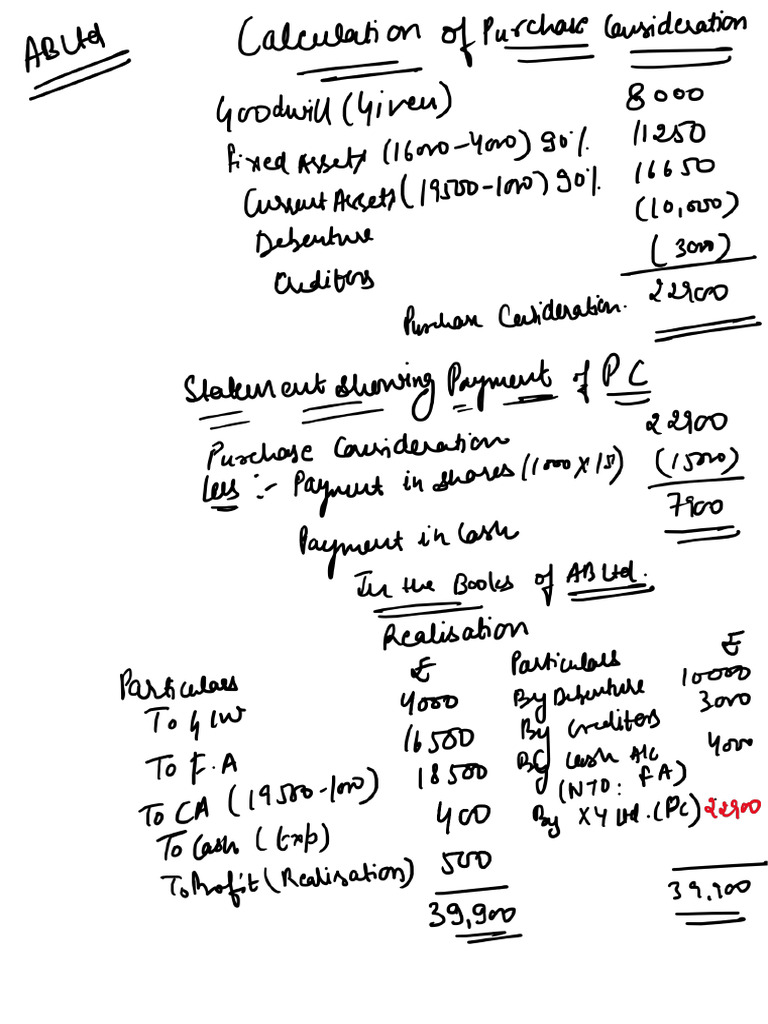 AB Ltd
Calculation of Purchase Consideration
Goodwill (Given) 8000
Fixed Assets (16500-4000) 90% 11250
Current Assets (19500-1000) 90% 16650
Debenture (10,000)
Creditors (3000)
Purchase Consideration. 22900
Statement showing Payment of PC
Purchase Consideration 22900
Less :- Payment in shares (1000 X 15) (15000)
Payment in Cash 7900
In the Books of AB Ltd.
Realisation
Particulars ₹ Particulars ₹
To G/W 4000 By Debenture 10000
To F.A 16500 By Creditors 3000
To CA (19500-1000) 18500 By Cash A/c 4000
(NTO: FA)
To Cash (Exp) 400 By XY Ltd. (PC) 22900
To Profit (Realisation) 500
39,900 39,900